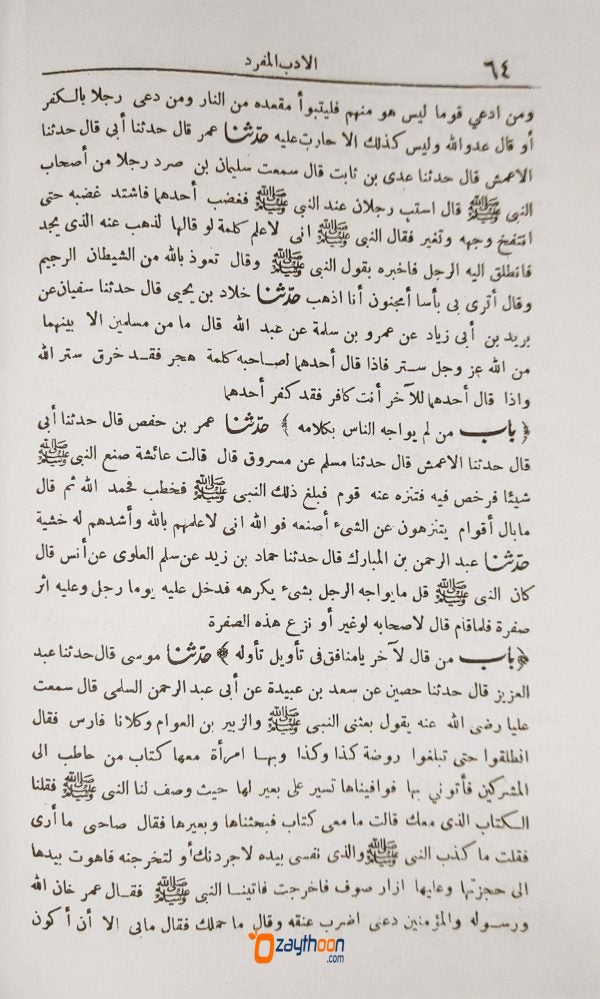 ٦٤ الادب المفرد
ومن ادعي قوما ليس هو منهم فليتبوأ مقعده من النار ومن دعى رجلا بالكفر
أو قال عدوالله وليس كذلك الا حارت عليه حدّثنا عمر قال حدثنا أبي قال حدثنا
الاعمش قال حدثنا عدى بن ثابت قال سمعت سليمان بن صرد رجلا من أصحاب
النبى ﷺ قال استب رجلان عند النبى ﷺ فغضب أحدهما فاشتد غضبه حتى
انتفخ وجهه وتغير فقال النبى ﷺ انى لاعلم كلمة لو قالها لذهب عنه الذى يجد
فانطلق اليه الرجل فاخبره بقول النبى ﷺ وقال تعوذ بالله من الشيطان الرجيم
وقال أترى بى بأسا أمجنون أنا اذهب حدّثنا خلاد بن يحيى قال حدثنا سفيان عن
يزيد بن أبى زياد عن عمرو بن سلمة عن عبد الله قال ما من مسلمين الا بينهما
من الله عز وجل ستر فاذا قال أحدهما لصاحبه كلمة هجر فقد خرق ستر الله
واذا قال أحدهما للآخر أنت كافر فقد كفر أحدهما
﴿ باب من لم يواجه الناس بكلامه ﴾ حدّثنا عمر بن حفص قال حدثنا أبى
قال حدثنا الاعمش قال حدثنا مسلم عن مسروق قال قالت عائشة صنع النبى ﷺ
شيئا فرخص فيه فتنزه عنه قوم فبلغ ذلك النبى ﷺ فخطب فحمد الله ثم قال
مابال أقوام يتنزهون عن الشىء أصنعه فو الله انى لاعلمهم بالله وأشدهم له خشية
حدّثنا عبد الرحمن بن المبارك قال حدثنا حماد بن زيد عن سلم العلوى عن أنس قال
كان النبى ﷺ قل مايواجه الرجل بشىء يكرهه فدخل عليه يوما رجل وعليه اثر
صفرة فلما قام قال لاصحابه لوغير أو نزع هذه الصفرة
﴿ باب من قال لآخر يامنافق فى تأويل تأوله ﴾ حدّثنا موسى قال حدثنا عبد
العزيز قال حدثنا حصين عن سعد بن عبيدة عن أبى عبد الرحمن السلمى قال سمعت
عليا رضى الله عنه يقول بعثنى النبى ﷺ والزبير بن العوام وكلانا فارس فقال
انطلقوا حتى تبلغوا روضة كذا وكذا وبها امرأة معها كتاب من حاطب الى
المشركين فأتونى بها فوافيناها تسير على بعير لها حيث وصف لنا النبى ﷺ فقلنا
الكتاب الذى معك قالت ما معى كتاب فبحثناها وبعيرها فقال صاحبى ما أرى
فقلت ما كذب النبى ﷺ والذى نفسى بيده لاجردنك أو لتخرجنه فاهوت بيدها
الى حجزتها وعليها ازار صوف فاخرجت فاتينا النبى ﷺ فقال عمر خان الله
ورسوله والمؤمنين دعنى اضرب عنقه وقال ما حملك فقال مابى الا أن أكون
zaythoon
.com